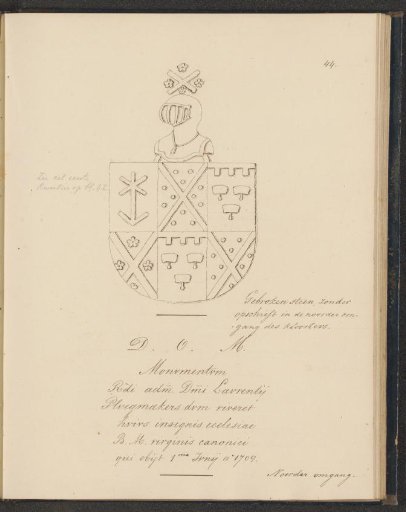 44.
Zie het eerste
kwartier op Pl. 42
Gebroken steen, zonder
opschrift in de noorder om-
gang des kloosters.
D. O. M.
Monumentum
Rdi adm. Dni Laurentij
Ploegmakers dum viveret
huius insignis ecclesiae
B. M. virginis canonici
qui obijt 1ma Junij ao 1709.
Noorder omgang.